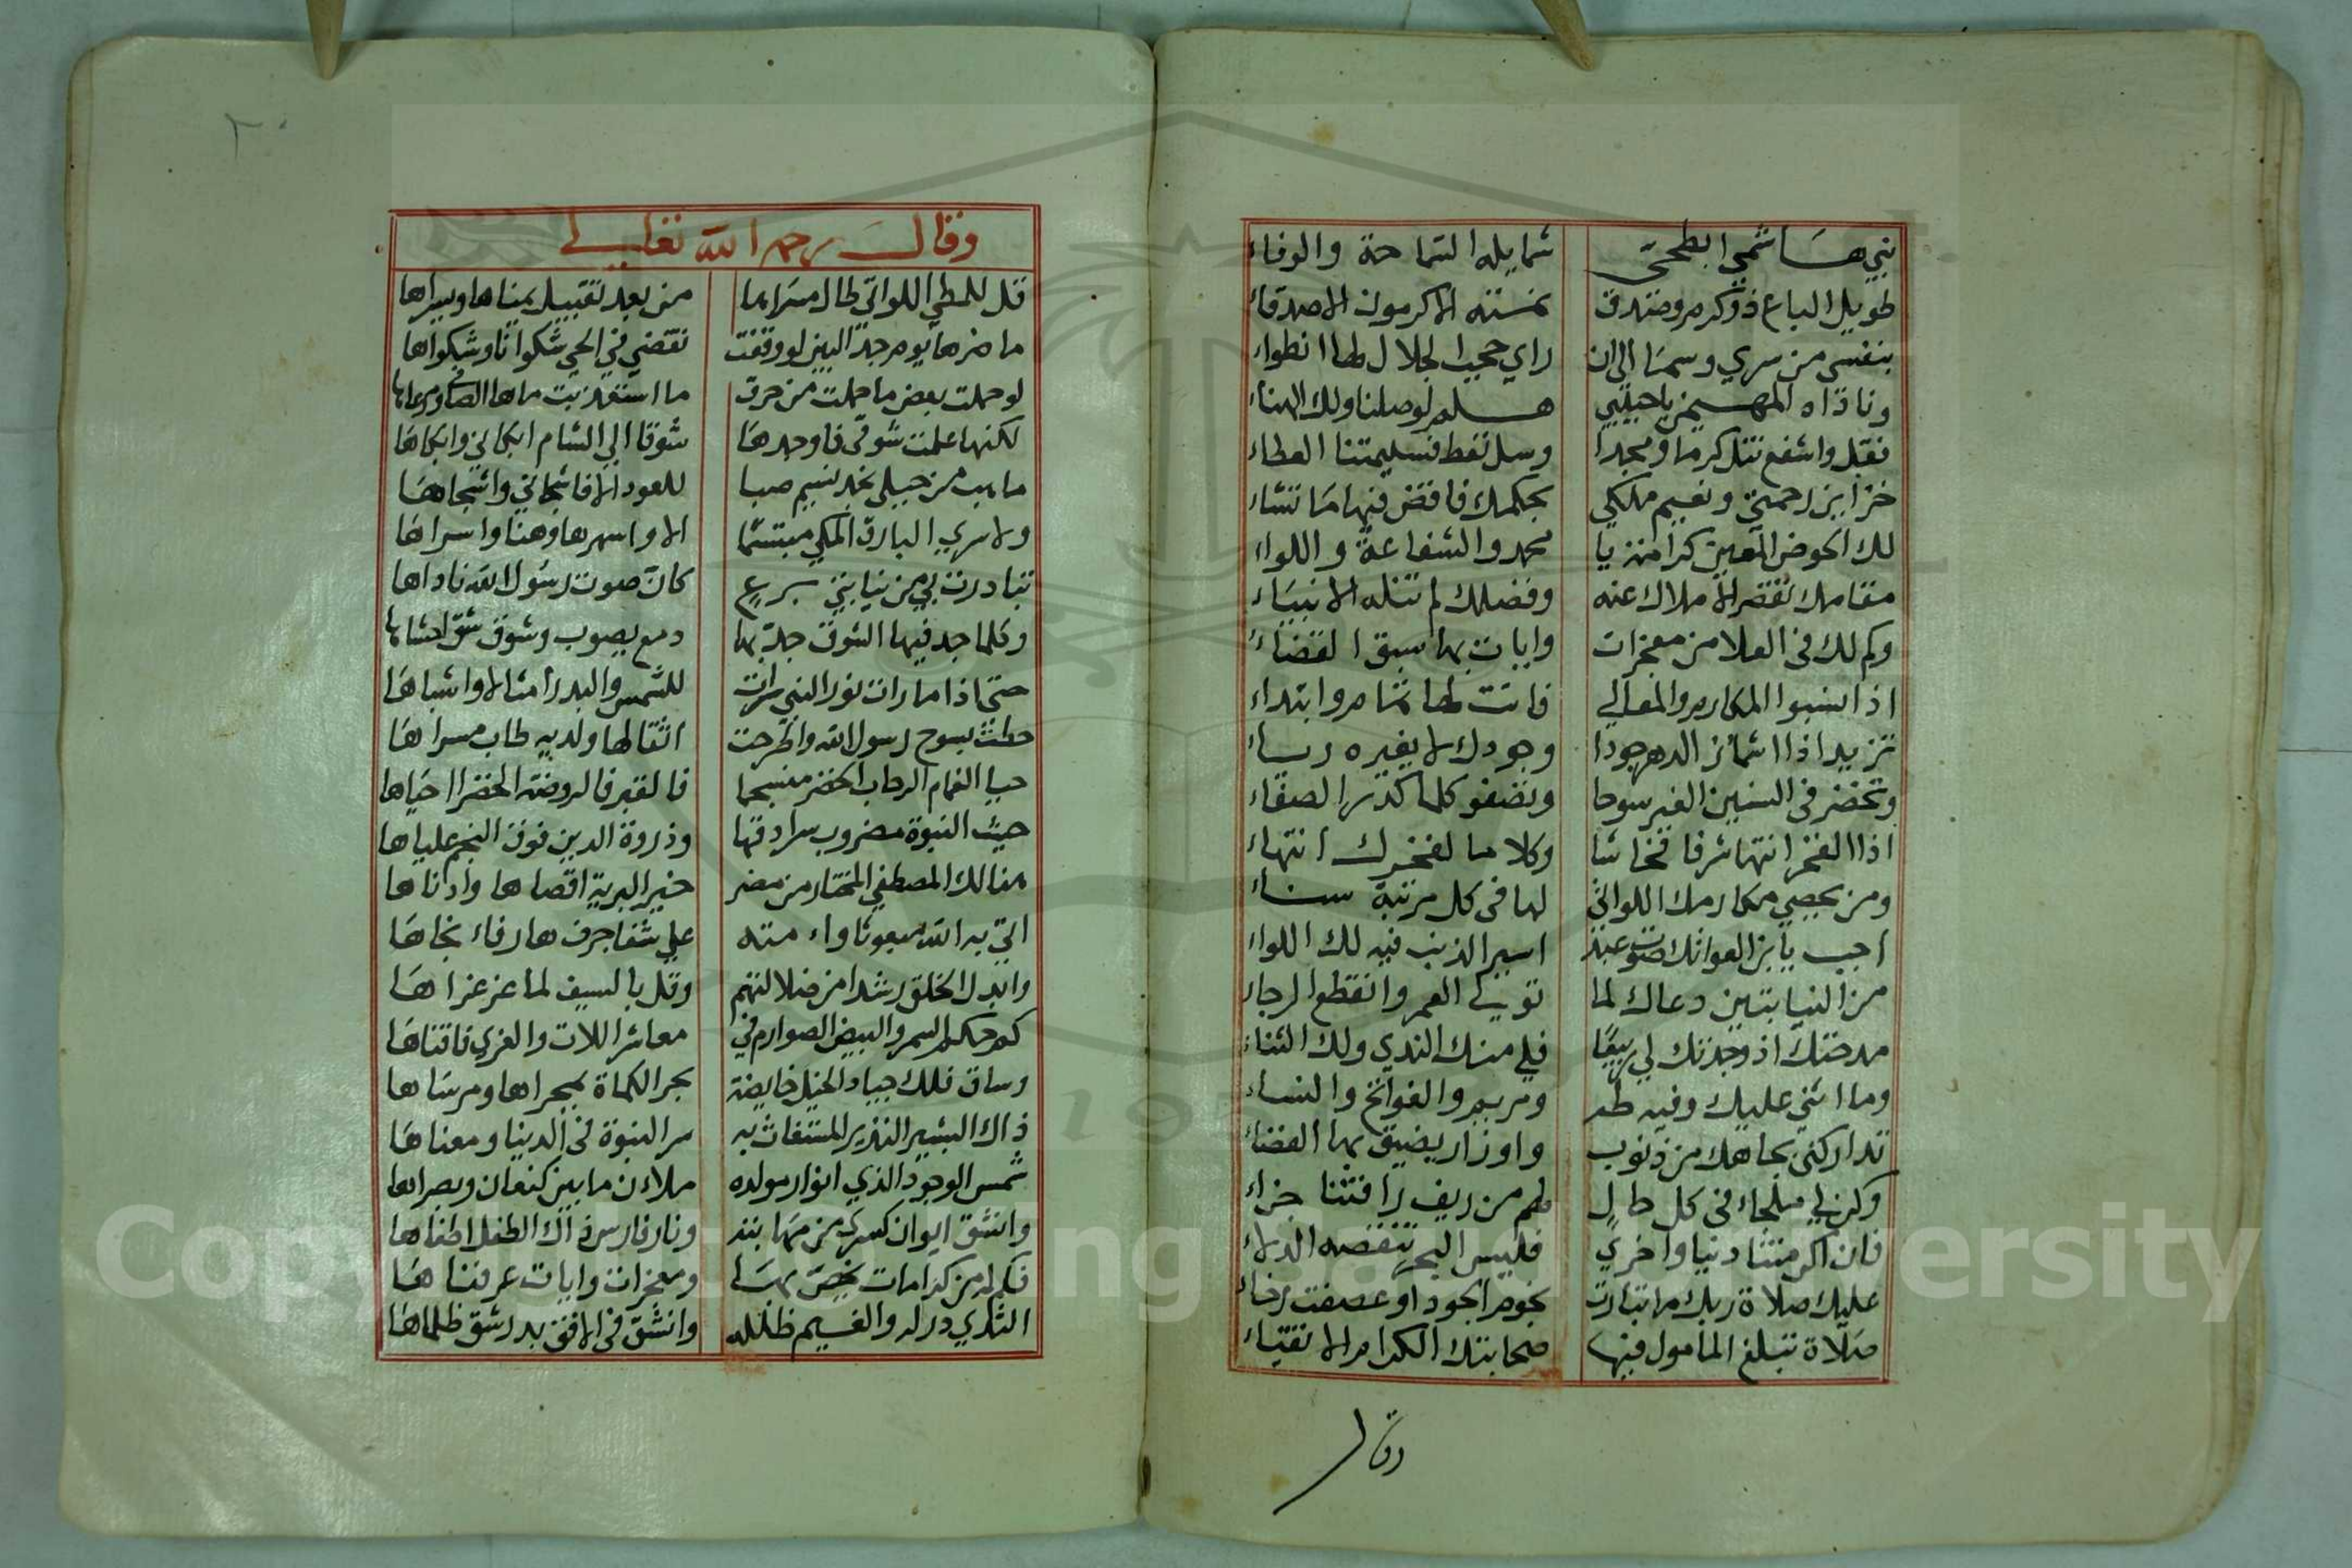 نبي هاشمي ابطحي شمايله السماحة والوفاء
طويل الباع ذو كرم وصدق نمسته الاكرمون الاصدقاء
بنفسي من سري وسما الى ان راي حجب الجلال لها انطواء
وناداه المهيمن يا حبيبي هلم لوصلنا ولك الهناء
فقل واشفع تنل كرما ومجدا وسل تعط فسليمتنا العطاء
خزاين رحمتي ونعيم ملكي بحكمك فاقض فيها ما تشاء
لك الحوض المعين كرامة يا محمد والشفاعة واللواء
مقامك تقصر الاملاك عنه وفضلك لم تنله الانبياء
وكم لك في العلا من معجزات وايات بها سبق القضاء
اذا نسبوا المكارم والمعالي فانت لها تمام وابتداء
تزيد اذا اشمائز الدهر جودا وجودك لا يغيره رساء
وتخضر في السنين الغبر سوحا وتصفو كلما كدر الصفاء
اذا الفخر انتها شرفا فحاشا وكلا ما لفخرك انتهاء
ومن يحصي مكارمك اللواتي لها في كل مرتبة سناء
اجب يا بن العواتك صوت عبد اسير الذنب فيه لك اللواء
من النيابتين دعاك لما تولي العمر وانقطع الرجاء
مدحتك اذ وجدتك لي ربيعا فلي منك الندي ولك الثناء
وما اثني عليك وفيه طه ومريم والفواتح والنساء
تداركني بجاهك من ذنوب واوزار يضيق بها الفضاء
وكن لي ملجاء في كل حال فلم من ريف رافتنا جزاء
فان اكرمتنا دنيا واخري فليس البحر تنقصه الدلاء
عليك صلاة ربك ما تبارت نجوم الجود او عصفت رخاء
صلاة تبلغ المامول فيها صحابتك الكرام الاتقياء
وقال
٢٠
وقال رحمه الله تعالي
قل للمطي اللواتي طال مسراها من بعد تقبيل يمناها ويسراها
ما ضرها يوم جد البين لو وقفت نقضي في الحي شكوانا وشكواها
لو حملت بعض ما حملت من حرق ما استعذبت ماها الصافي ومرعاها
لكنها علمت شوقي فاوجدها شوقا الي الشام ابكاني وابكاها
ما هب من جبلي نجد نسيم صبا للعود الا فاشجاني واشجاها
ولا سري البارق المكي مبتسما الا واسهرها وهنا واسراها
تبادرت بي من نيابتي برع كان صوت رسول الله ناداها
وكلما جد فيها الشوق جد بها دمع يصوب وشوق شق احشاها
حتي اذا ما رات نور النبي رات للشمس والبدر امثالا واشباها
حطت بسوح رسول الله واطرحت اثقالها ولديه طاب مسراها
حيا الغمام الرحاب الخضر منسجما فالقبر فالروضة الخضرا احياها
حيث النبوة مضروب سرادقها وذروة الدين فوق النجم علياها
هنالك المصطفي المختار من مضر خير البرية اقصاها وادناها
اتي به الله مبعوثا وامته علي شفا جرف هار فاء نجاها
وابدل الخلق رشدا من ضلالتهم وقل بالسيف لما عز عزاها
كم حكم السمر والبيض الصوارم في معاشر اللات والعزي فافناها
وساق فلك جياد الخيل خايضة بحر الكماة بمجراها ومرساها
ذاك البشير النذير المستغاث به سر النبوة في الدنيا ومعناها
شمس الوجود الذي انوار مولده ملاءن ما بين كنعان وبصراها
وانشق ايوان كسري من مهابته ونار فارس ذاك الطفل اطفاها
فكم له من كرامات يخص بها ومعجزات وايات عرفناها
الثدي در له والغيم ظلله وانشق في الافق بدر شق ظلماها